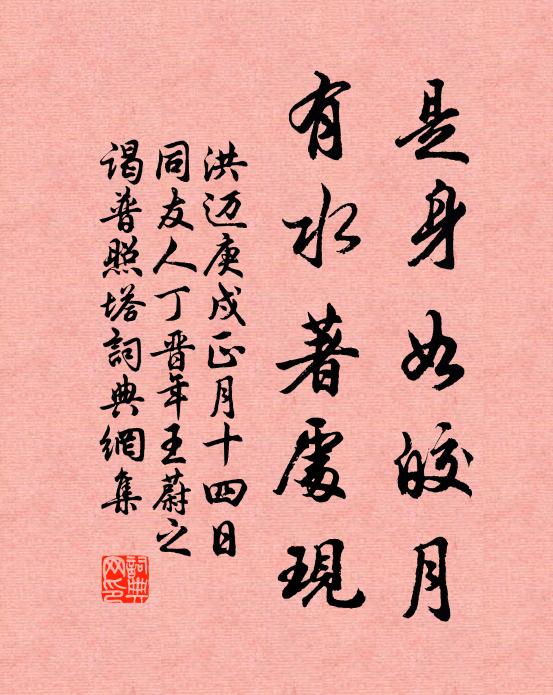 是身如皎月
有水著處現
洪迈庚戌正月十四日
同友人丁晋年王蔚之
谒普照塔詞典網集
詞典
网印